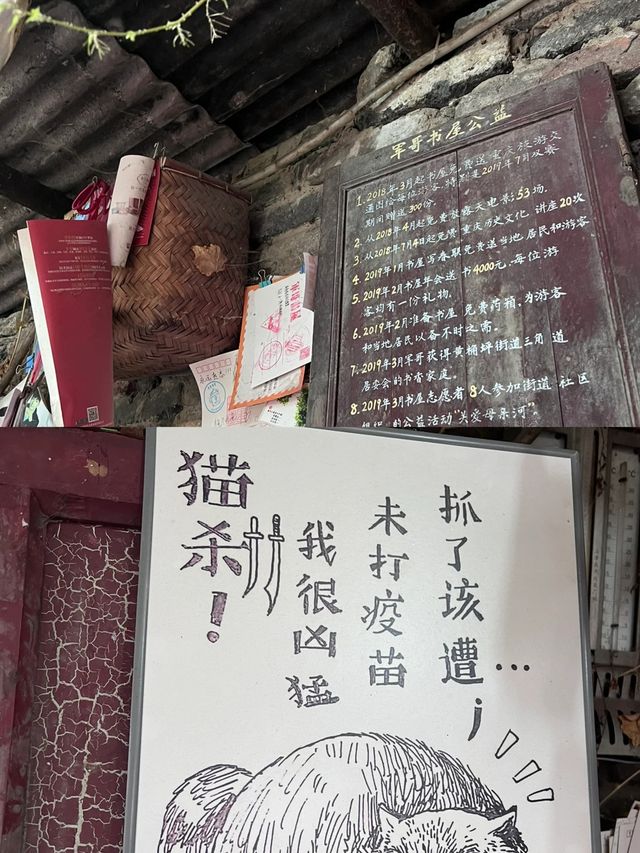 军哥书屋公益
1. 2018年3月起书屋免费送重庆旅游交
通图给每位游客，特别是2019年7月双赛
期间赠送300份.
2. 从2018年4月起免费放露天电影53场.
3. 从2018年7月4日起免费重庆历史文化讲座20次
4. 2019年1月书屋写春联免费送当地居民和游客.
5. 2019年2月书屋年会送书4000元,每位游
客均有一份礼物.
6. 2019年2月准备书屋免费药箱,为游客
和当地居民以备不时之需.
7. 2019年3月军哥获得黄桷坪街道三角道
居委会的书香家庭.
8. 2019年3月书屋志愿者8人参加街道社区
组织的公益活动“关爱母亲河”.
猫杀！
我很凶猛
未打疫苗
抓了该遭…